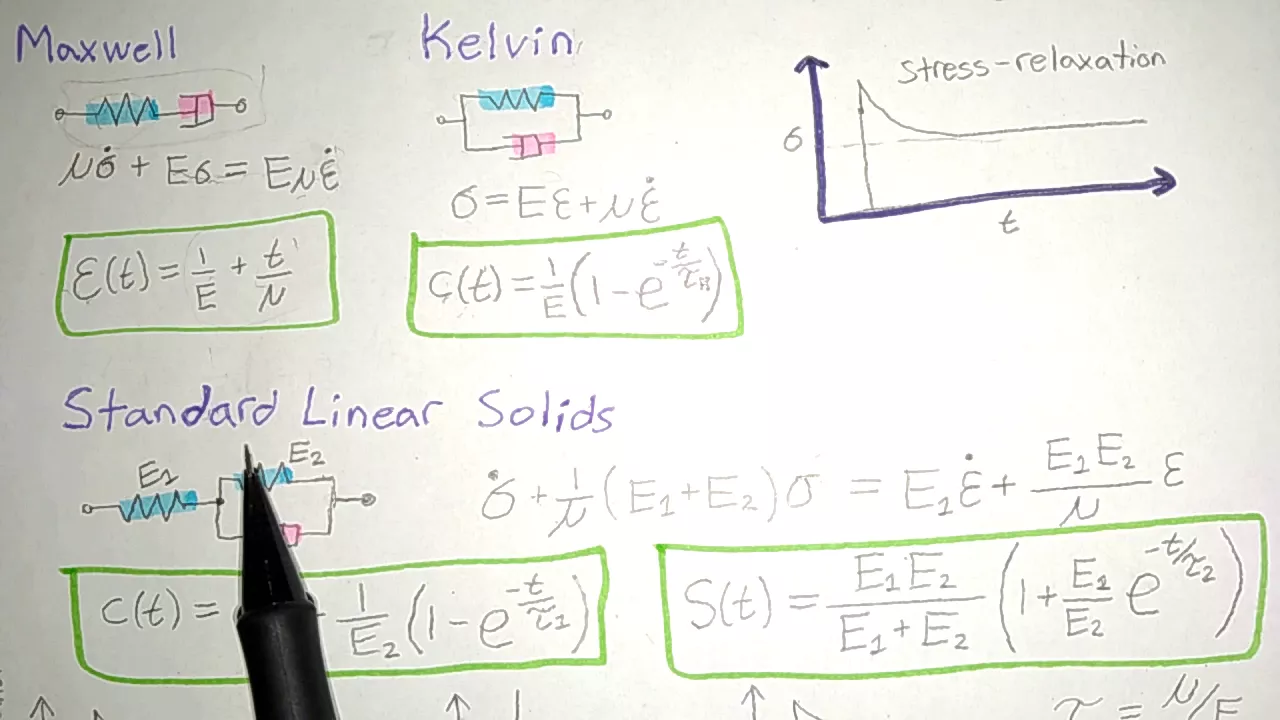 Maxwell
μσ̇ + Eσ = Eμε̇
ε(t) = 1/E + t/μ
Kelvin
σ = Eε + με̇
c(t) = 1/E (1 - e^(-t/τ_R))
stress-relaxation
σ
t
Standard Linear Solids
E₁
E₂
σ̇ + 1/μ (E₁+E₂)σ = E₁ε̇ + E₁E₂/μ ε
C(t) = 1/E₂ (1 - e^(-t/τ₁))
S(t) = E₁E₂/(E₁+E₂) (1 + E₁/E₂ e^(-t/τ₂))
τ = μ/E